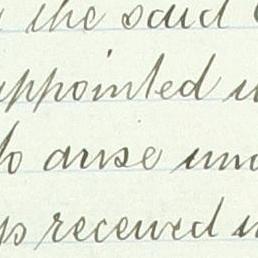 the said
appointed
to arise und
received